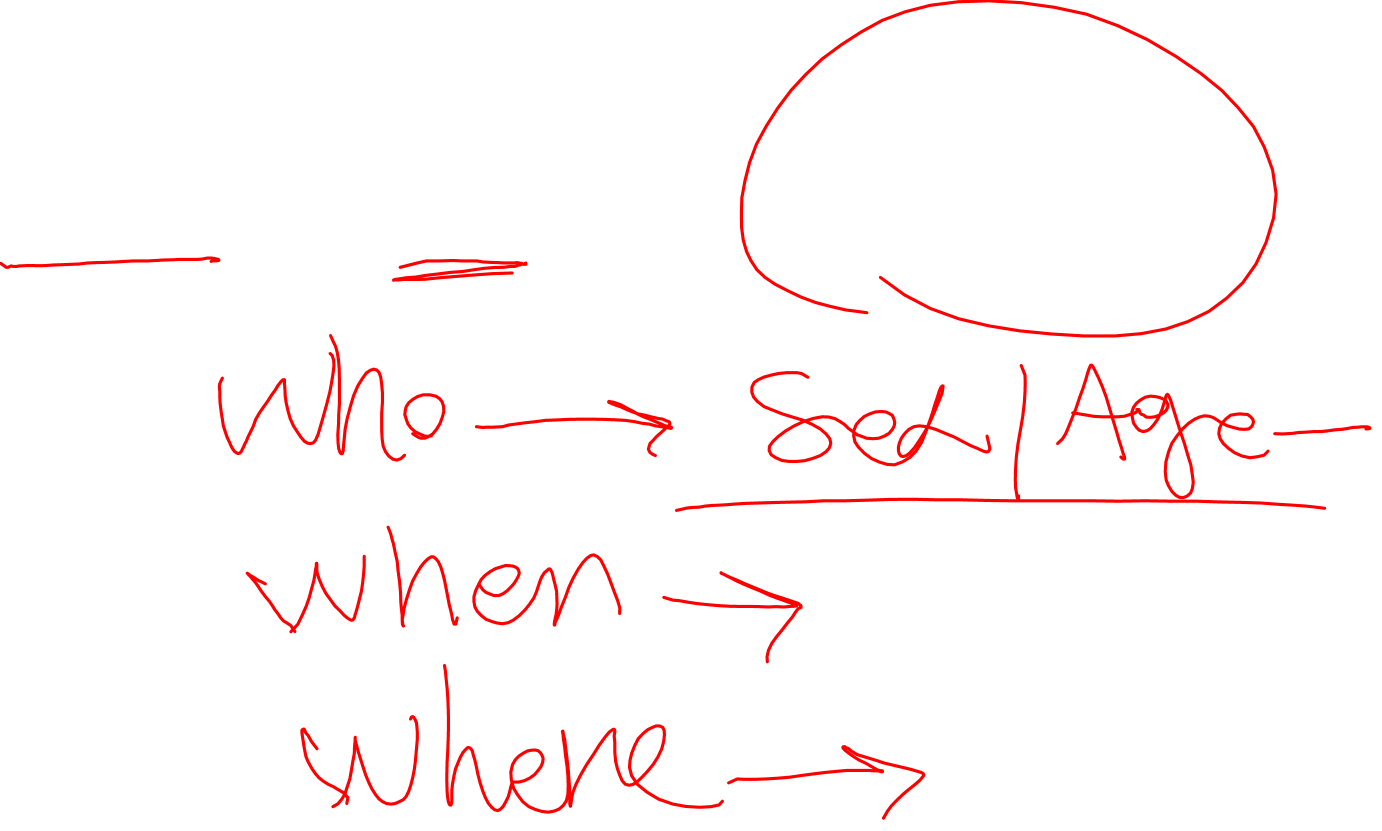 Who → Sex | Age —
When →
Where →